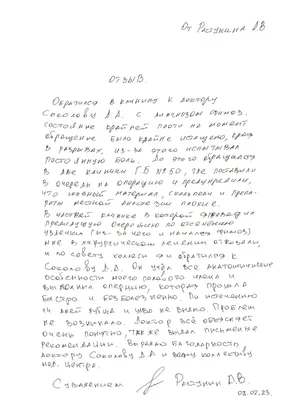 От Расунина Д.В
ОТЗЫВ.
Обратился в клинику к доктору
Соколову Д.А. с диагнозом фимоз.
Состояние крайней плоти на момент
обращения было крайне истощено, края
в разрывах, из-за этого испытывал
постоянную боль. До этого обращался
в две клиники Г.Б №50, где поставили
в очередь на операцию и предупредили,
что шовный материал, скальпели и препа-
раты местной анестезии плохие.
В частной клинике в которой проводил
предыдущую операцию по иссечению
уздечки (из-за чего и начался фимоз)
мне в хирургическом лечении отказали,
и по совету коллеги я обратился к
Соколову Д.А. Он учёл все анатомические
особенности моего полового члена и
выполнил операцию, которая прошла
быстро и безболезненно. По истечению
14 дней рубца и шва не видно. Проблем
не возникало. Доктор всё объясняет
очень понятно, также выдал письменные
рекомендации. Выражаю благодарность
доктору Соколову Д.А и всему коллективу
мед. центра.
С уважением Расунин Д.В.
02.02.23.